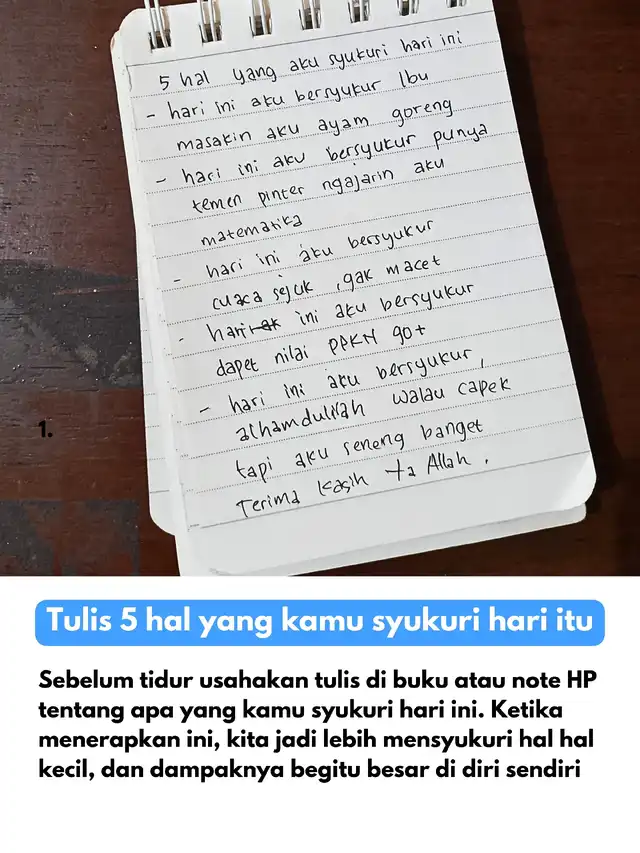 5 hal yang aku syukuri hari ini
- hari ini aku bersyukur Ibu
masakin aku ayam goreng
- hari ini aku bersyukur punya
temen pinter ngajarin aku
matematika
- hari ini aku bersyukur
cuaca sejuk, gak macet
- hari ini aku bersyukur
dapet nilai PPKN 90+
- hari ini aku bersyukur,
alhamdulillah walau capek
tapi aku seneng banget
Terima kasih Ya Allah.
1.
Tulis 5 hal yang kamu syukuri hari itu
Sebelum tidur usahakan tulis di buku atau note HP
tentang apa yang kamu syukuri hari ini. Ketika
menerapkan ini, kita jadi lebih mensyukuri hal hal
kecil, dan dampaknya begitu besar di diri sendiri